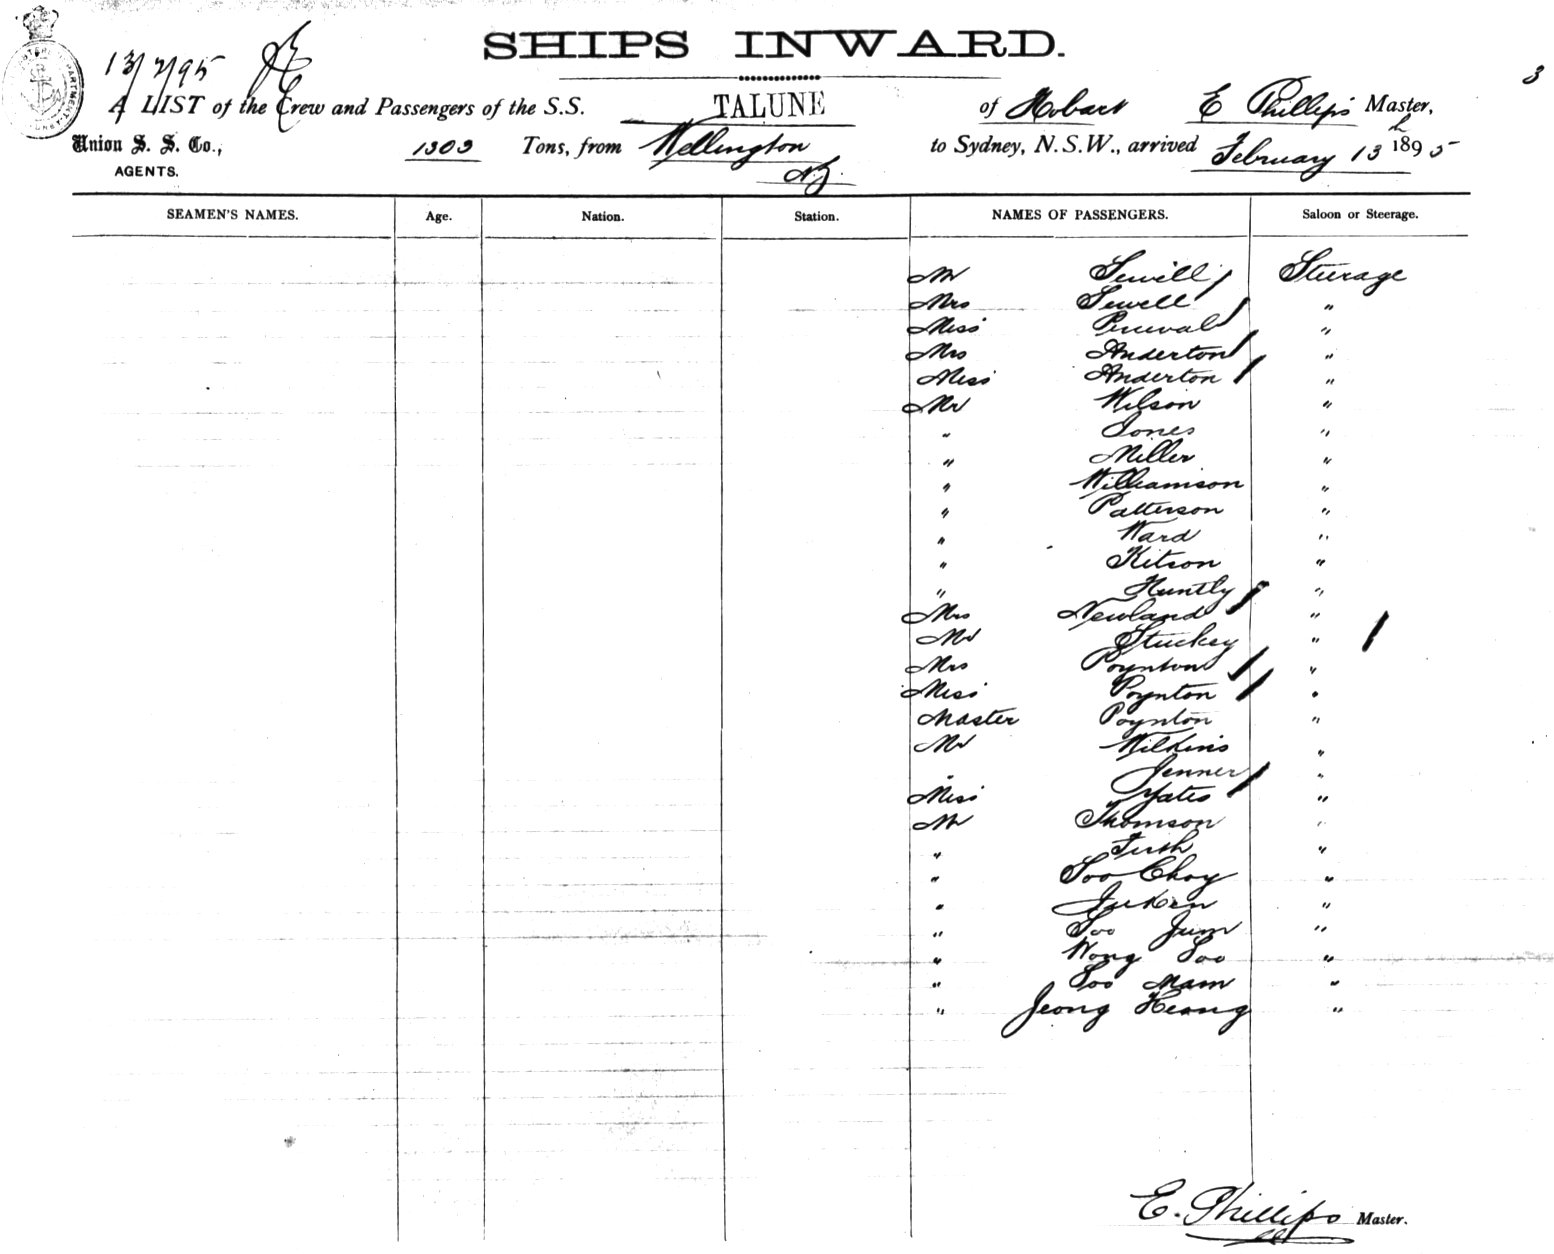 SHIPS INWARD.
13/2/95
3
A LIST of the Crew and Passengers of the S.S. TALUNE of Hobart E Phillips Master,
Union S. S. Co., 1303 Tons, from Wellington to Sydney, N.S.W., arrived February 13th 1895
AGENTS. N.Z.
SEAMEN'S NAMES. Age. Nation. Station. NAMES OF PASSENGERS. Saloon or Steerage.
Mr Sewill Steerage
Mrs Sewell "
Miss Percival "
Mrs Anderton "
Miss Anderton "
Mr Wilson "
" Jones "
" Miller "
" Williamson "
" Patterson "
" Ward "
" Kitson "
" Huntly "
Mrs Newland "
Mr Stuckey "
Mrs Poynton "
Miss Poynton "
Master Poynton "
Mr Wilkins "
" Jenner "
Miss Yates "
Mr Thomson "
" Firth "
" Soo Choy "
" "
" Soo Jum "
" Wong Soo "
" Soo Mam "
" Jeong Keong "
E. Phillips Master.